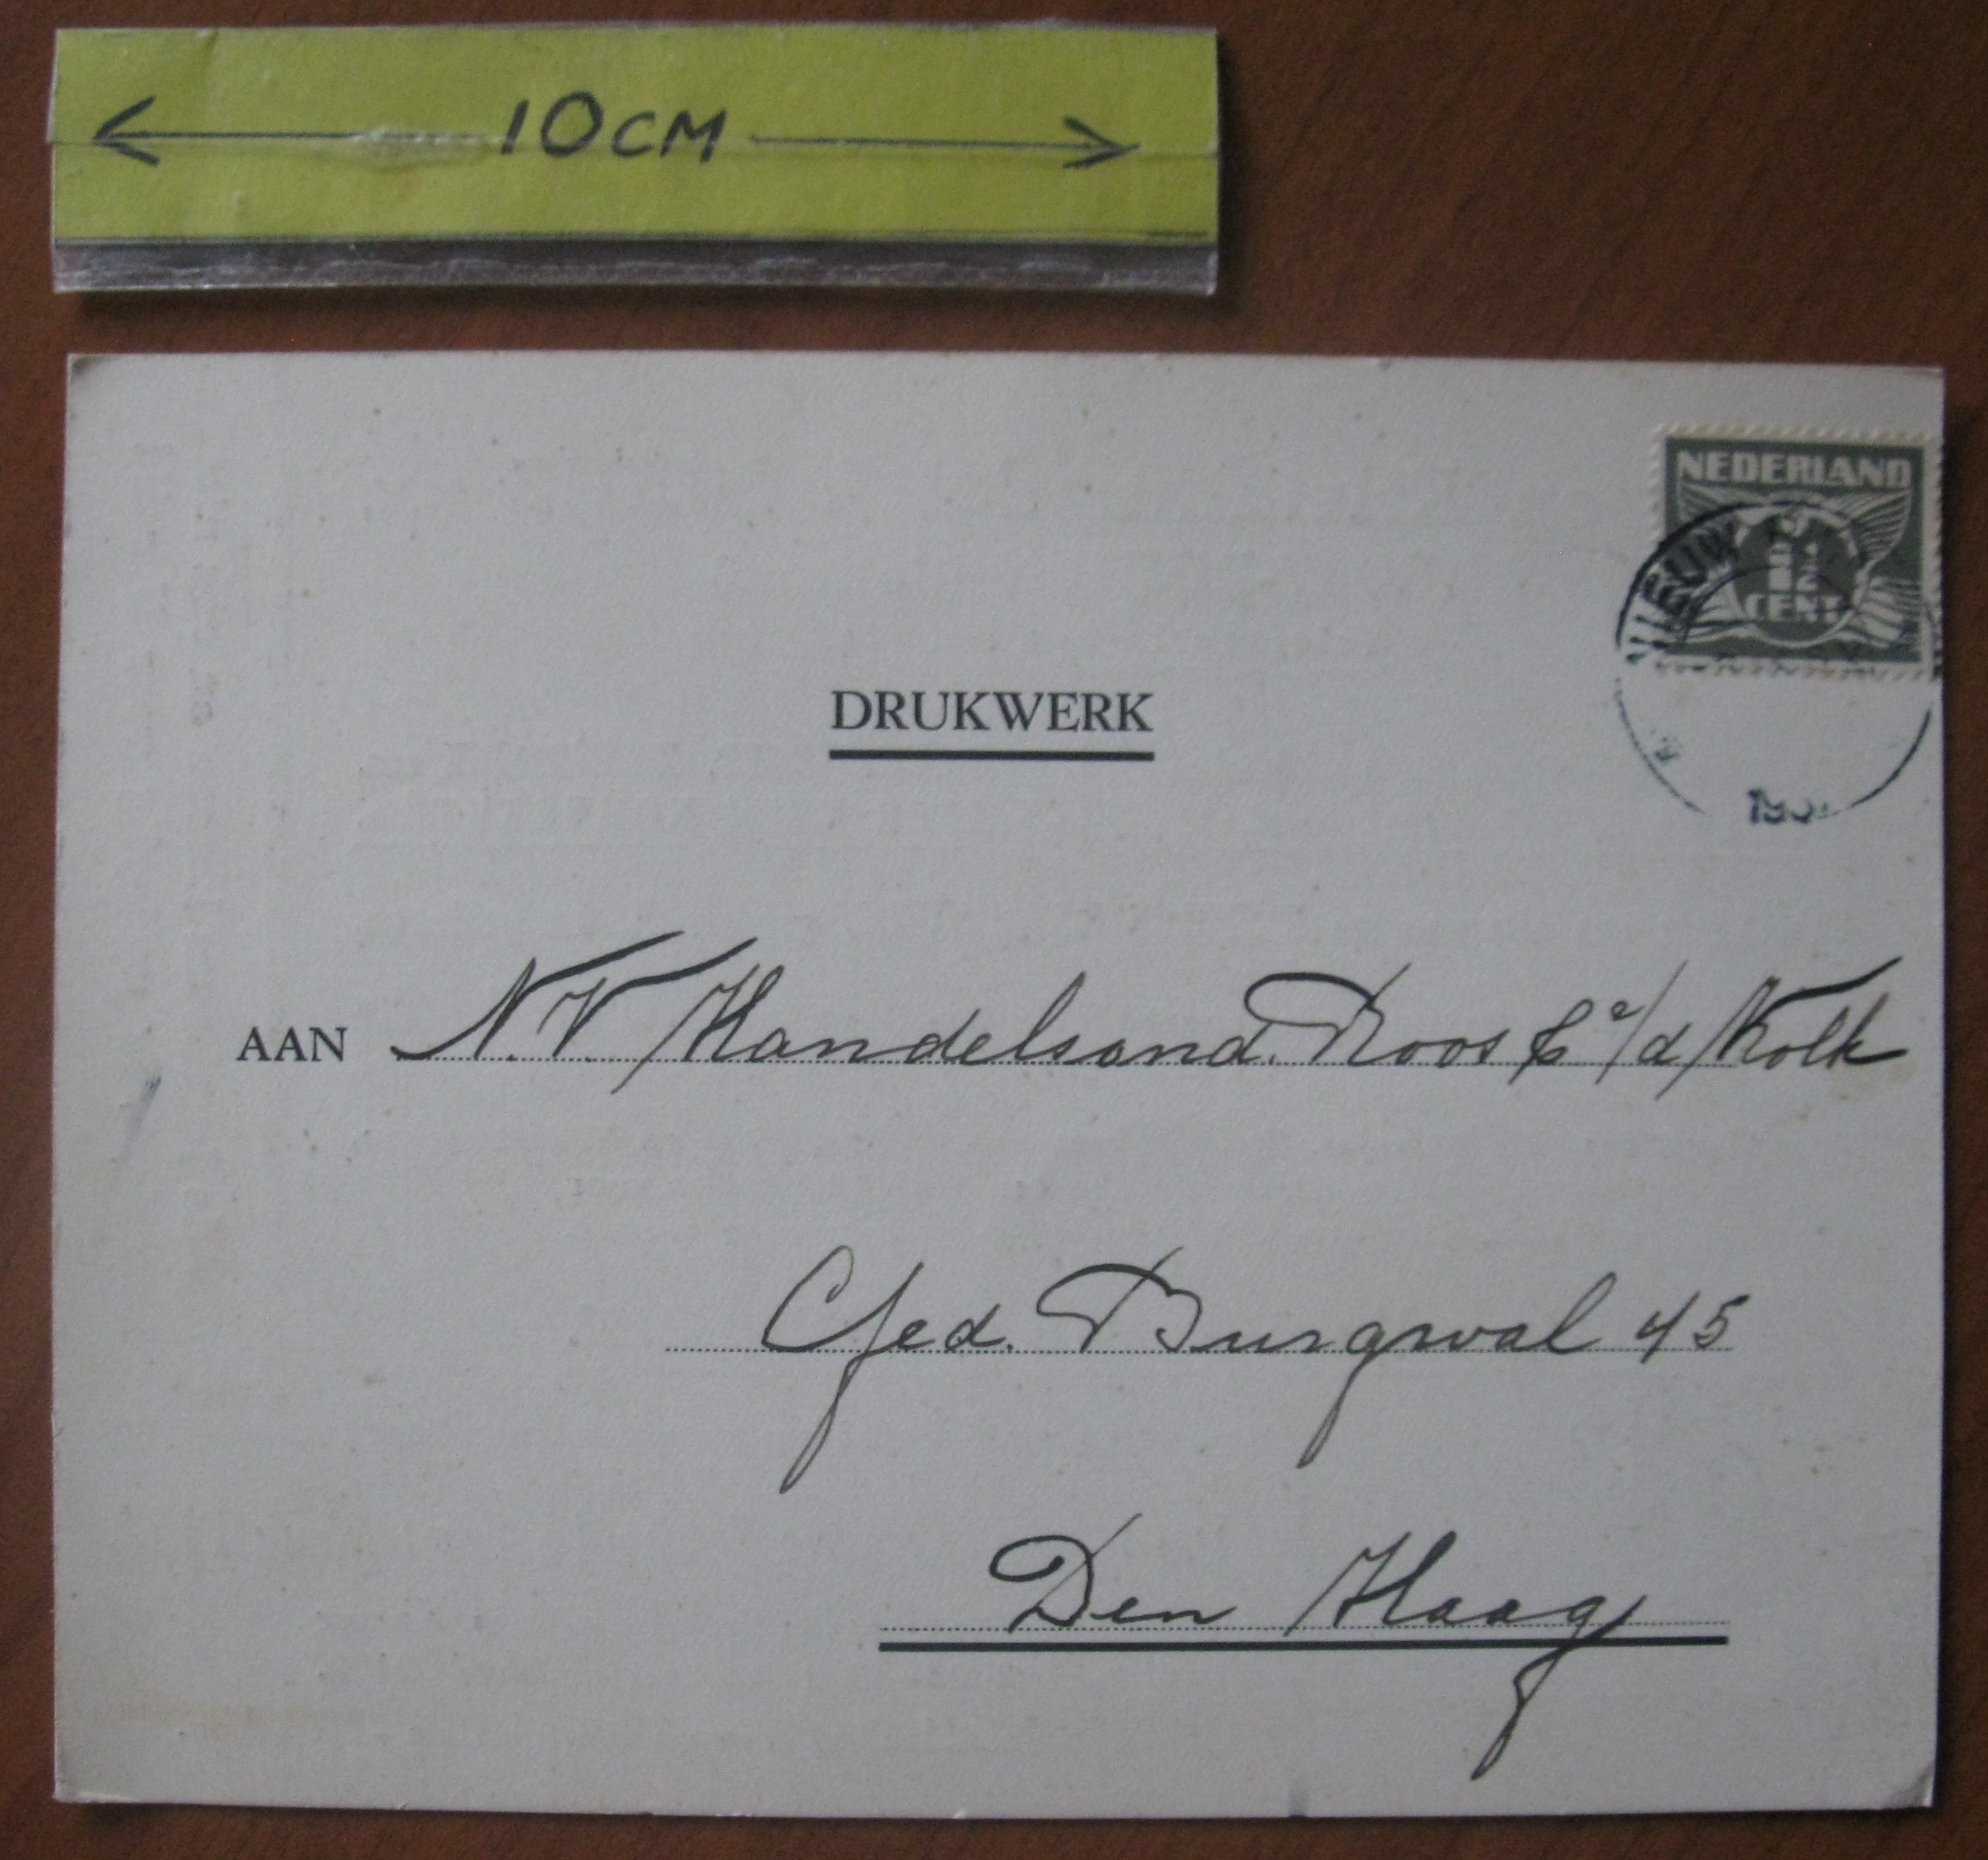 10CM
NEDERLAND
1 1/2
CENT
DRUKWERK
AAN N.V. Handelsond. Roos & v/d Kolk
Gfed. Burgwal 45
Den Haag